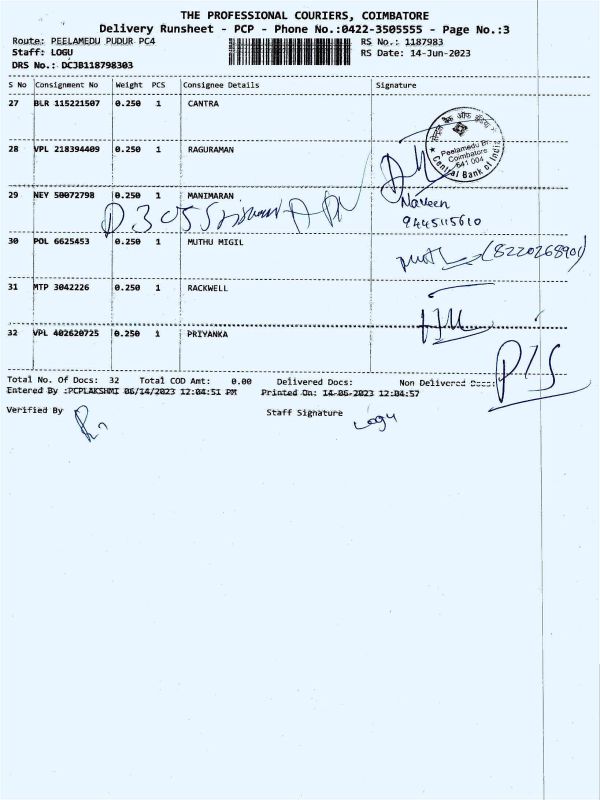 THE PROFESSIONAL COURIERS, COIMBATORE
Delivery Runsheet - PCP - Phone No.:0422-3505555 - Page No.:3
Route: PEELAMEDU PUDUR PC4 RS No.: 1187983
Staff: LOGU RS Date: 14-Jun-2023
DRS No.: DCJB118798303
S No Consignment No Weight PCS Consignee Details Signature
27 BLR 115221507 0.250 1 CANTRA
Peelamedu Br.
Coimbatore
641 004
Central Bank of India
28 VPL 218394409 0.250 1 RAGURAMAN
29 NEY 50072798 0.250 1 MANIMARAN
Naveen
9445115610
30 POL 6625453 0.250 1 MUTHU MIGIL
(8220268901)
31 MTP 3042226 0.250 1 RACKWELL
32 VPL 402620725 0.250 1 PRIYANKA
Total No. Of Docs: 32 Total COD Amt: 0.00 Delivered Docs: Non Delivered Docs:
Entered By :PCPLAKSHMI 06/14/2023 12:04:51 PM Printed On: 14-06-2023 12:04:57
Verified By Staff Signature Logu